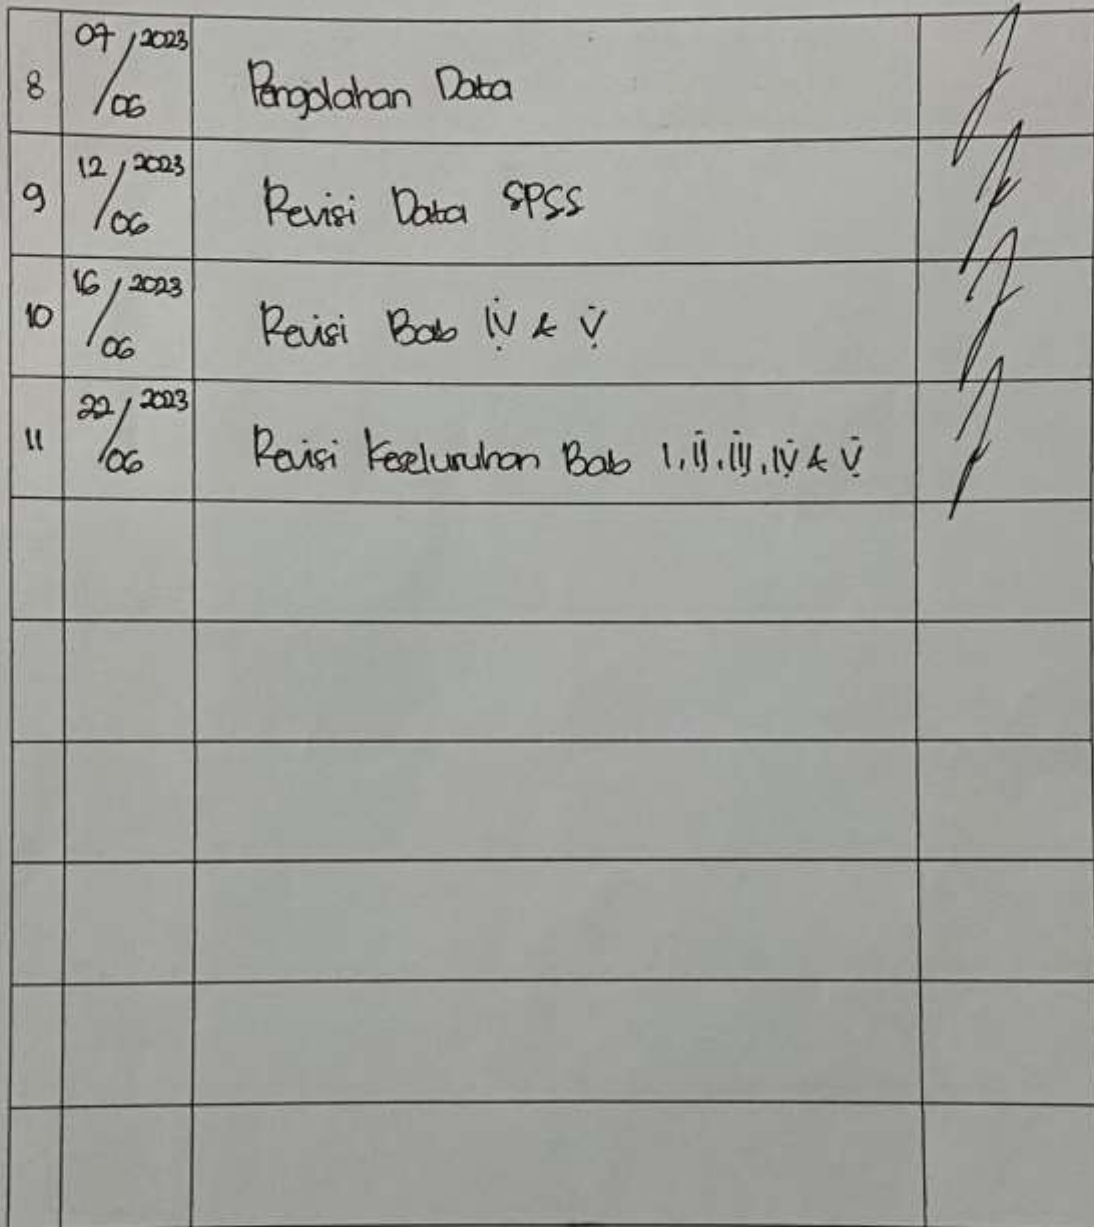 8 07/06 2023 Pengolahan Data
9 12/06 2023 Revisi Data SPSS
10 16/06 2023 Revisi Bab IV & V
11 22/06 2023 Revisi Keseluruhan Bab I, II, III, IV & V